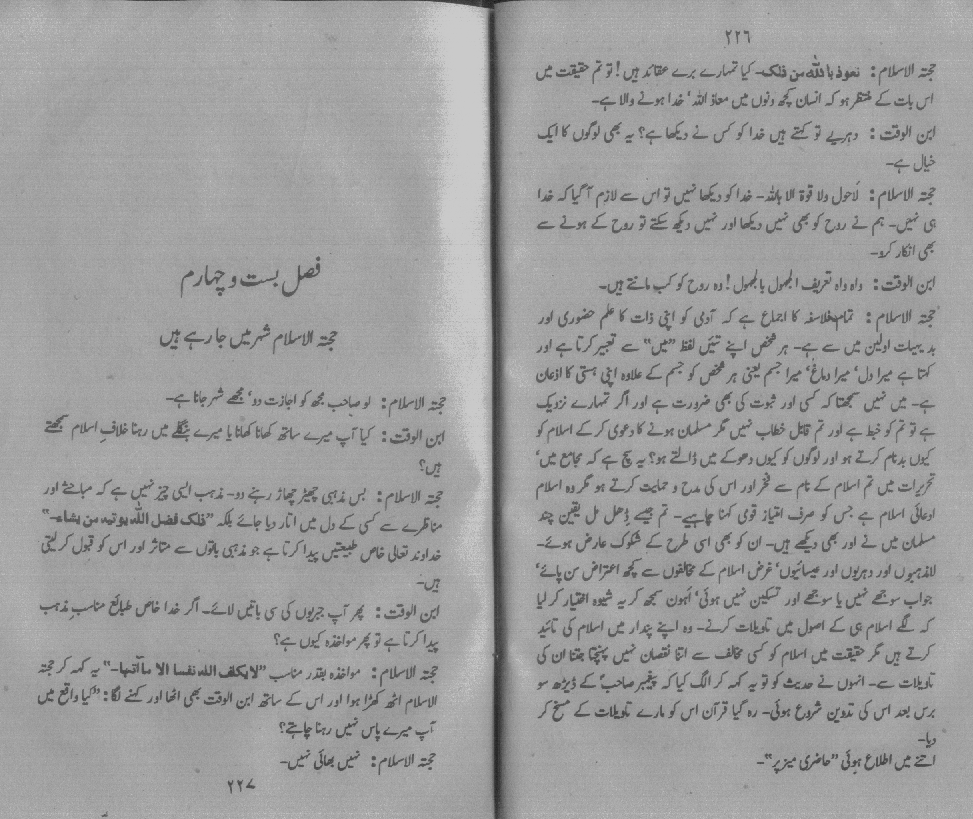 ۲۲۶
حجتہ الاسلام : نعوذ باللہ من ذلک۔ کیا تمہارے برے عقائد ہیں! تو تم حقیقت میں
اس بات کے منتظر ہو کہ انسان کچھ دنوں میں معاذ اللہ‘ خدا ہونے والا ہے۔
ابن الوقت : دہریے تو کہتے ہیں خدا کو کس نے دیکھا ہے؟ یہ بھی لوگوں کا ایک
خیال ہے۔
حجتہ الاسلام : لاحول ولا قوۃ الا باللہ۔ خدا کو دیکھا نہیں تو اس سے لازم آگیا کہ خدا
ہی نہیں۔ ہم نے روح کو بھی نہیں دیکھا اور نہیں دیکھ سکتے تو روح کے ہونے سے
بھی انکار کرو۔
ابن الوقت : واہ واہ تعریف المجہول بالمجہول! وہ روح کو کب مانتے ہیں۔
حجتہ الاسلام : تمام فلاسفہ کا اجماع ہے کہ آدمی کو اپنی ذات کا علم حضوری اور
بدیہیات اولین میں سے ہے۔ ہر شخص اپنے تئیں لفظ ”میں“ سے تعبیر کرتا ہے اور
کہتا ہے میرا دل‘ میرا دماغ‘ میرا جسم یعنی ہر شخص کو جسم کے علاوہ اپنی ہستی کا اذعان
ہے۔ میں نہیں سمجھتا کہ کسی اور ثبوت کی بھی ضرورت ہے اور اگر تمہارے نزدیک
ہے تو تم کو خبط ہے اور تم قابل خطاب نہیں مگر مسلمان ہونے کا دعوی کر کے اسلام کو
کیوں بدنام کرتے ہو اور لوگوں کو کیوں دھوکے میں ڈالتے ہو؟ یہ سچ ہے کہ مجامع میں‘
تحریرات میں تم اسلام کے نام سے فخر اور اس کی مدح و حمایت کرتے ہو مگر وہ اسلام
ادعائی اسلام ہے جس کو صرف امتیاز قومی کہنا چاہیے۔ تم جیسے ڈھل مل یقین چند
مسلمان میں نے اور بھی دیکھے ہیں۔ ان کو بھی اسی طرح کے شکوک عارض ہوئے۔
لاذہبوں اور دہریوں اور عیسائیوں‘ غرض اسلام کے مخالفوں سے کچھ اعتراض سن پائے‘
جواب سوجھے نہیں یا سوجھے اور تسکین نہیں ہوئی‘ اہون سمجھ کر یہ شیوہ اختیار کر لیا
کہ لگے اسلام ہی کے اصول میں تاویلات کرنے۔ وہ اپنے پندار میں اسلام کی تائید
کرتے ہیں مگر حقیقت میں اسلام کو کسی مخالف سے اتنا نقصان نہیں پہنچتا جتنا ان کی
تاویلات سے۔ انہوں نے حدیث کو تو یہ کہہ کر الگ کیا کہ پیغمبر صاحبؐ کے ڈیڑھ سو
برس بعد اس کی تدوین شروع ہوئی۔ رہ گیا قرآن اس کو مارے تاویلات کے مسخ کر
دیا۔
اتنے میں اطلاع ہوئی ”حاضری میز پر“۔
فصل بست و چہارم
حجتہ الاسلام شہر میں جا رہے ہیں
حجتہ الاسلام : لو صاحب مجھ کو اجازت دو‘ مجھے شہر جانا ہے۔
ابن الوقت : کیا آپ میرے ساتھ کھانا کھانا یا میرے بنگلے میں رہنا خلاف اسلام سمجھتے
ہیں؟
حجتہ الاسلام : بس مذہبی چھیڑ چھاڑ رہنے دو۔ مذہب ایسی چیز نہیں ہے کہ مباحثے اور
مناظرے سے کسی کے دل میں اتار دیا جائے بلکہ ”ذلک فضل اللہ یوتیہ من یشاء۔“
خداوند تعالی خاص طبیعتیں پیدا کرتا ہے جو مذہبی باتوں سے متاثر اور اس کو قبول کر لیتی
ہیں۔
ابن الوقت : پھر آپ جبریوں کی سی باتیں لائے۔ اگر خدا خاص طبائع مناسب مذہب
پیدا کرتا ہے تو پھر مواخذہ کیوں ہے؟
حجتہ الاسلام : مواخذہ بقدر مناسب ”لایکلف اللہ نفسا الا ما آتیہا۔“ یہ کہہ کر حجتہ
الاسلام اٹھ کھڑا ہوا اور اس کے ساتھ ابن الوقت بھی اٹھا اور کہنے لگا: ”کیا واقع میں
آپ میرے پاس نہیں رہنا چاہتے؟
حجتہ الاسلام : نہیں بھائی نہیں۔
۲۲۷